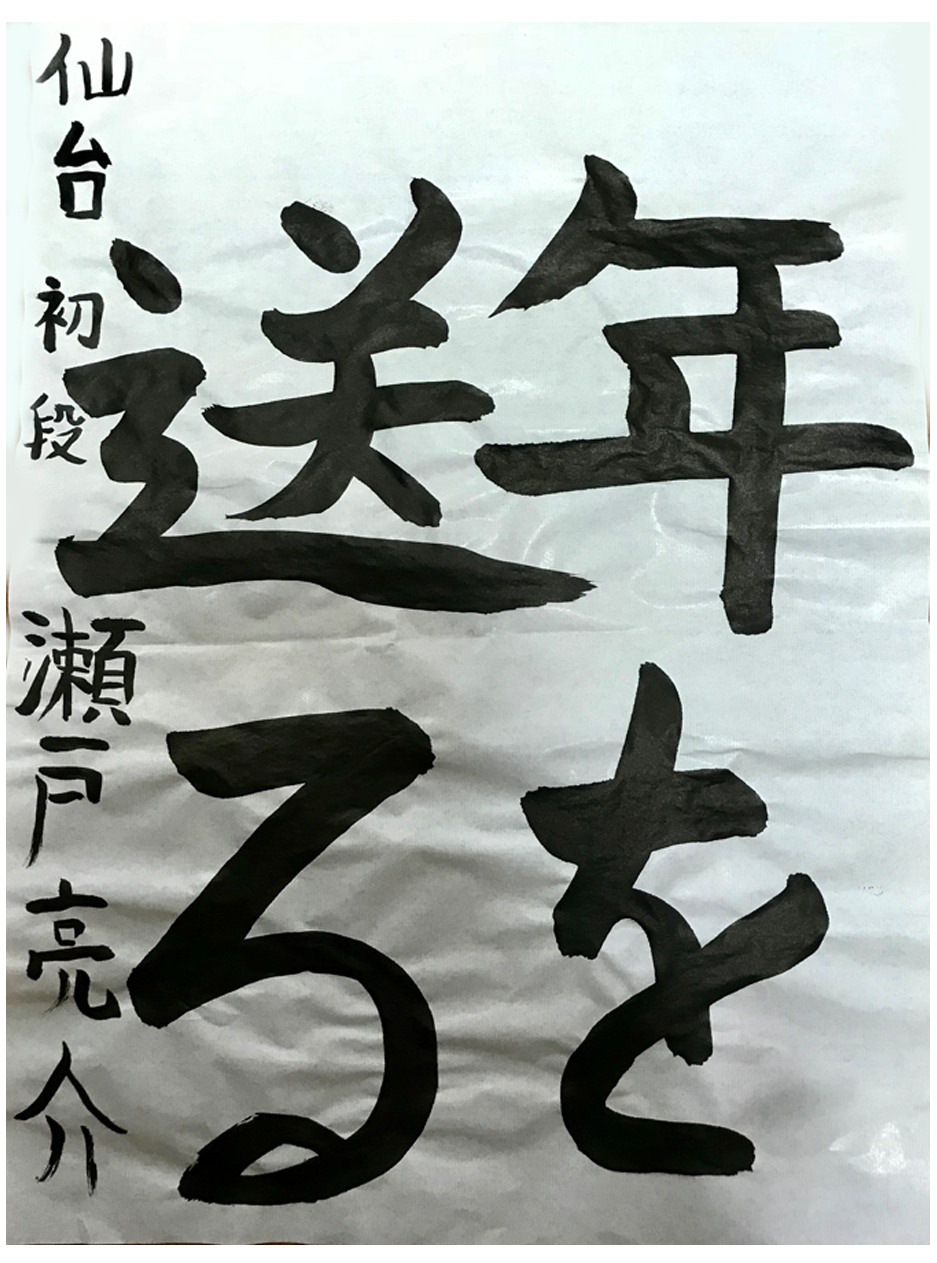 年を
送る
仙台 初段 瀬戸亮介